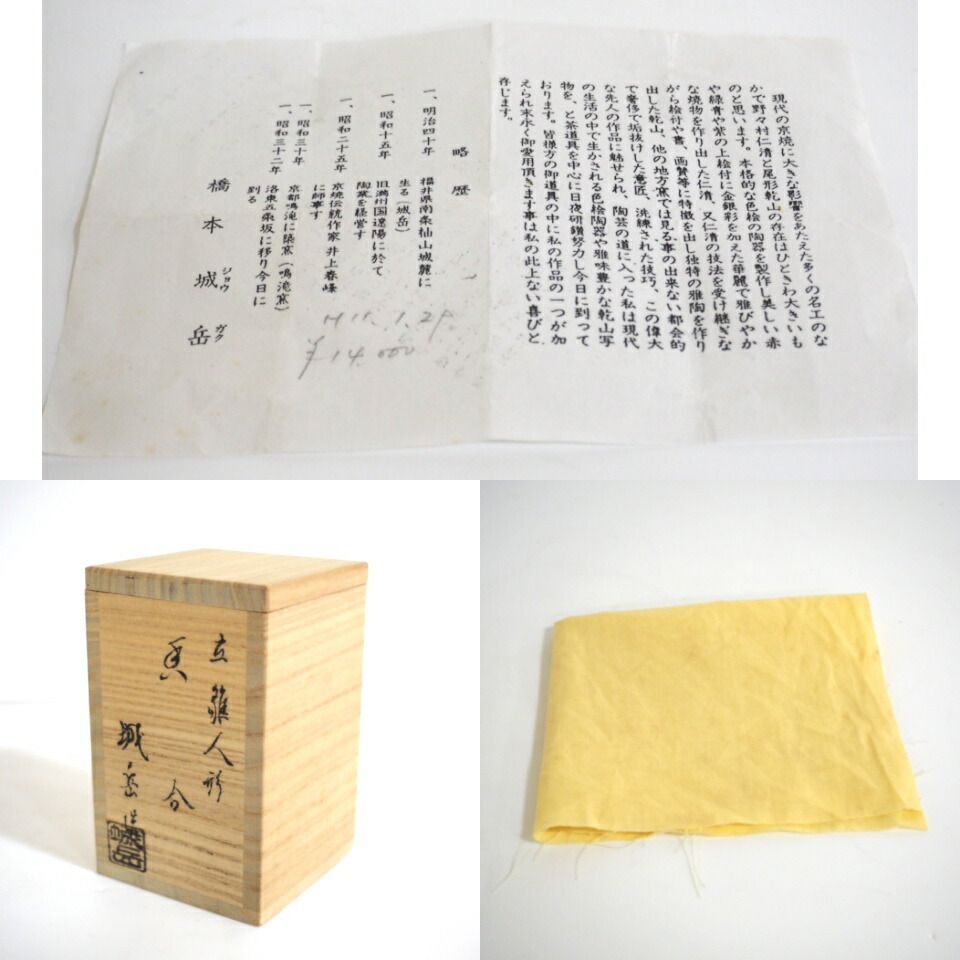 現代の京焼に大きな影響をあたえた多くの名工のな
かで野々村仁清と尾形乾山の存在はひときわ大きいも
のと思います。本格的な色絵の陶器を製作し美しい赤
や緑青や紫の上絵付に金銀彩を加えた華麗で雅びやか
な焼物を作り出した仁清、又仁清の技法を受け継ぎな
がら絵付や書、画賛等に特徴を出し独特の雅陶を作り
出した乾山、他の地方窯では見る事の出来ない都会的
で奢侈で垢抜けした意匠、洗練された技巧、この偉大
な先人の作品に魅せられ、陶芸の道に入った私は現代
の生活の中で生かされる色絵陶器や雅味豊かな乾山写
物を、と茶道具を中心に日夜研鑽努力し今日に到って
おります。皆様方の御道具の中に私の作品の一つが加
えられ末永く御愛用頂きます事は私の此上ない喜びと
存じます。
略歴
一、明治四十年 福井県南条杣山城麓に
生る(城岳)
一、昭和十五年 旧満州国遼陽に於て
陶業を経営す
一、昭和二十五年 京焼伝統作家井上春峰
に師事す
一、昭和三十年 京都鳴滝に築窯(鳴滝窯)
一、昭和三十二年 洛東五条坂に移り今日に
到る
橋本城岳
ジョウ ガク
H11.1.29
¥14.000
立雛人形
香合
城岳造
城岳